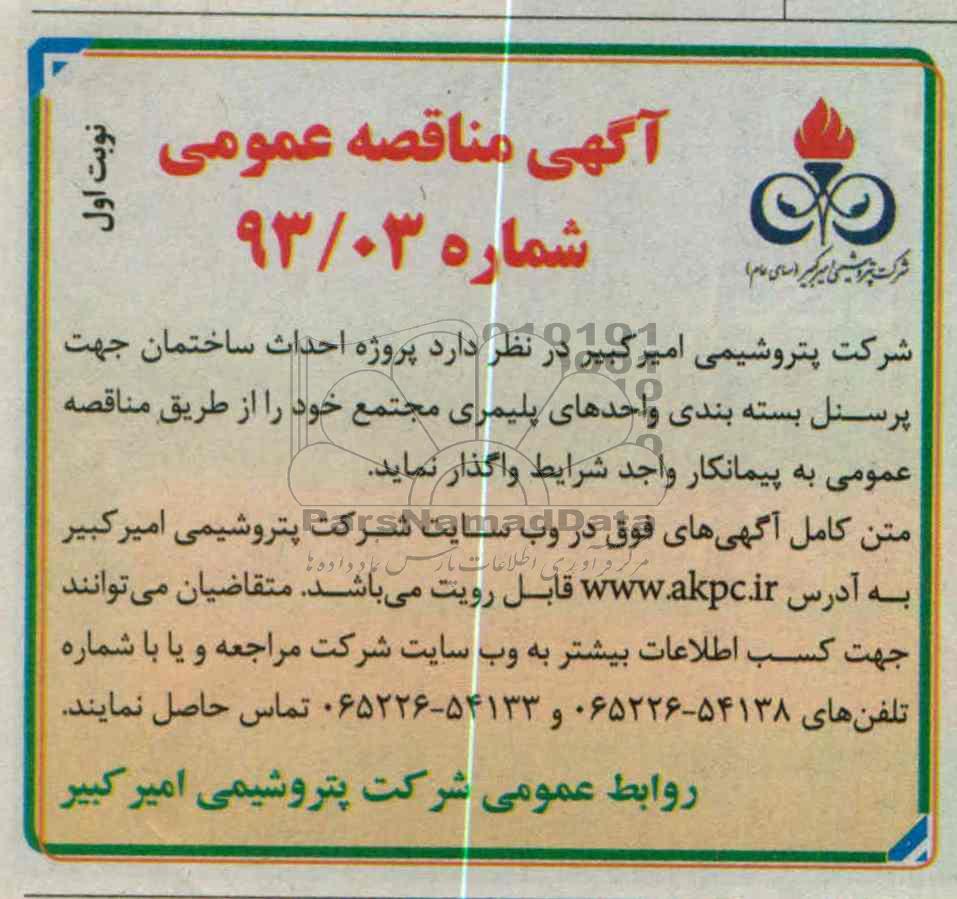 آگهی مناقصه عمومی
شماره ۹۳/۰۳
نوبت اول
شرکت پتروشیمی امیرکبیر (سهامی عام)
شرکت پتروشیمی امیرکبیر در نظر دارد پروژه احداث ساختمان جهت
پرسنل بسته بندی واحدهای پلیمری مجتمع خود را از طریق مناقصه
عمومی به پیمانکار واجد شرایط واگذار نماید.
متن کامل آگهی‌های فوق در وب سایت شرکت پتروشیمی امیرکبیر
به آدرس www.akpc.ir قابل رویت می‌باشد. متقاضیان می‌توانند
جهت کسب اطلاعات بیشتر به وب سایت شرکت مراجعه و یا با شماره
تلفن‌های ۵۴۱۳۸-۰۶۵۲۲۶ و ۵۴۱۳۳-۰۶۵۲۲۶ تماس حاصل نمایند.
روابط عمومی شرکت پتروشیمی امیرکبیر
ParsNamadData